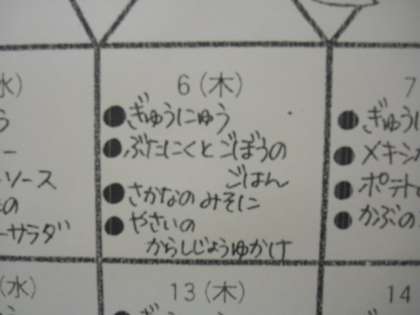 水)
6(木)
7
ぎゅうにゅう
ぶたにくとごぼうの
ごはん
さかなのみそに
やさいの
からしじょうゆかけ
ソース
の
ーサラダ
ぎゅう
メキシカ
ポテト
かぶの
(水)
13(木)
14